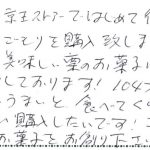 京王ストアーではじめて
ごっそりを購入致しま
美味しい栗のお菓子に
しております! 104才
うまいと 食べてく
い購入したいです!
お菓子をお創り下さい